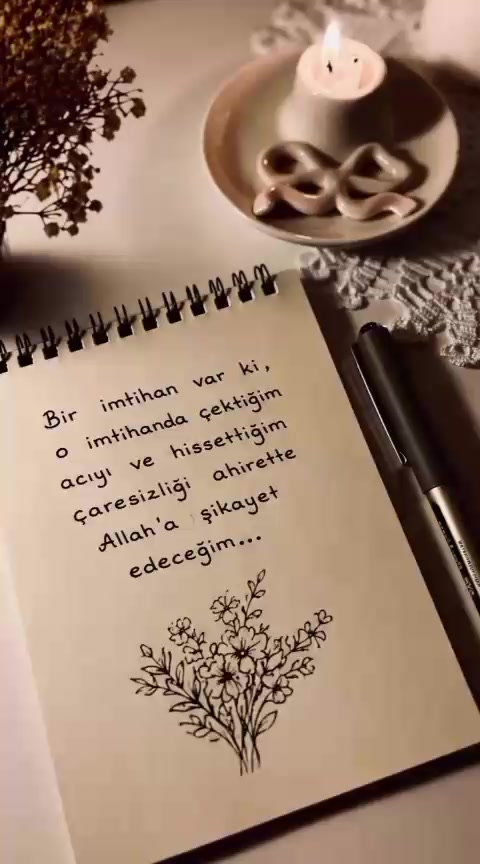 Bir imtihan var ki,
o imtihanda çektiğim
acıyı ve hissettiğim
çaresizliği ahirette
Allah'a şikayet
edeceğim...